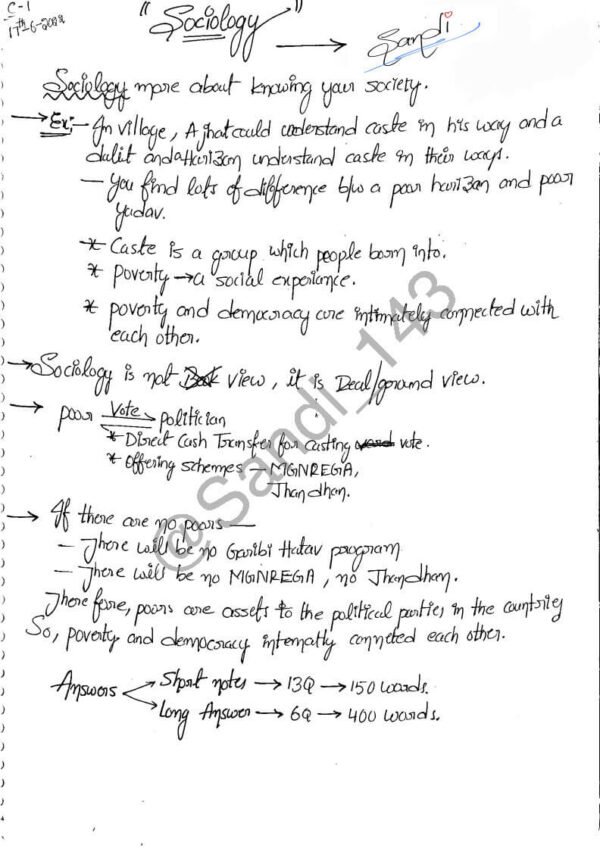 C-1
17th-6-2022
" Sociology " → Sandi
Sociology more about knowing your society.
→ Ex:- In village, A jhat could understand caste in his way and a
dalit and a harizan understand caste in their ways.
- You find lots of difference b/w a poor harizan and poor
yadav.
* Caste is a group which people born into.
* Poverty → a social experiance.
* poverty and democracy are intimately connected with
each other.
→ Sociology is not Book view, it is Deal/ground view.
→ poor Vote politician
* Direct Cash Transfer for casting vote.
* offering schemes - MGNREGA,
Jhandhan.
→ If there are no poors —
- There will be no Garibi Hatav program
- There will be no MGNREGA, no Jhandhan.
There fore, poors are assets to the political parties in the countries
So, poverty and democracy internatly connected each other.
Answers → Short notes → 13Q → 150 words.
→ Long Answer → 6Q → 400 words.
@Sandi_143